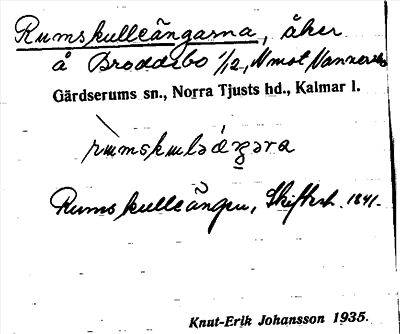 Rumskulleängarna, åker
å Broddebo 1/12, N mot Vannereds
Gärdserums sn., Norra Tjusts hd., Kalmar l.
Rumskulleängen, Skiftesh. 1841.
Knut-Erik Johansson 1935.